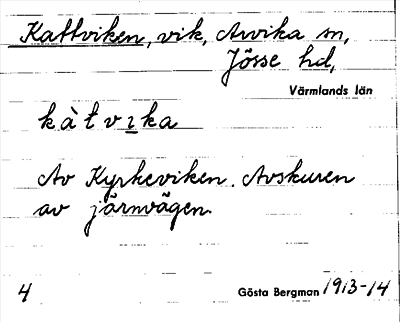 Kattviken, vik, Arvika sn,
Jösse hd,
Värmlands län
kàtvıka
Av Kyrkeviken. Avskuren
av järnvägen.
4 Gösta Bergman 1913-14